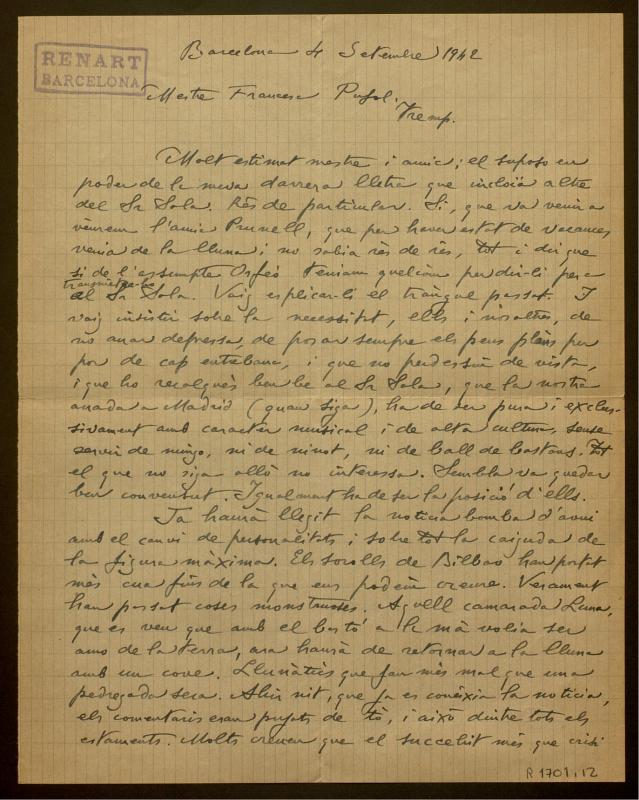 RENART
BARCELONA
Barcelona 4 Setembre 1942
Mestre Francesc Pujol.
Tremp.
Molt estimat mestre i amic; el suposo en
poder de la meva darrera lletra que incloïa altre
del Sr Sola. Rés de particular. Si, que va venir a
veurem l'amic Prunell, que per haver estat de vacances
venia de la lluna i no sabia rès de rès, tot i dir que
si de l'assumpte Orfeó teniam quelcom per dir-li per a
transmetre-ho
al Sr Sola. Vaig esplicar-li el tràngue passat. I
vaig insistir sobre la necessitat, ells i nosaltres, de
no anar depressa, de posar sempre els peus plans per
por de cap entrebanc, i que no perdessin de vista,
i que ho recalqués ben be al Sr Sola, que la nostra
anada a Madrid (quan siga), ha de ser pura i exclus-
sivament amb caracter musical i de alta cultura, sense
servir de mingo, ni de ninot, ni de ball de bastons. Tot
el que no siga allò no interessa. Sembla va quedar
ben convensut. Igualment ha de ser la posició d'ells.
Ja haurà llegit la noticia bomba d'avui
amb el canvi de personalitats i sobre tot la caiguda de
la figura màxima. Els sorolls de Bilbao han portat
més cua fins de la que ens podem creure. Verament
han passat coses monstruoses. Aquell camarada Luna,
que es veu que amb el bastó a la mà volia ser
amo de la terra, ara haurà de retornar a la lluna
amb un cove. Llunàtics que fan més mal que una
pedregada seca. Ahir nit, que ja es coneixia la noticia,
els comentaris eran pujats de tò, i això dintre tots els
estaments. Molts creuen que el succehit més que crisi
R 1701, 12